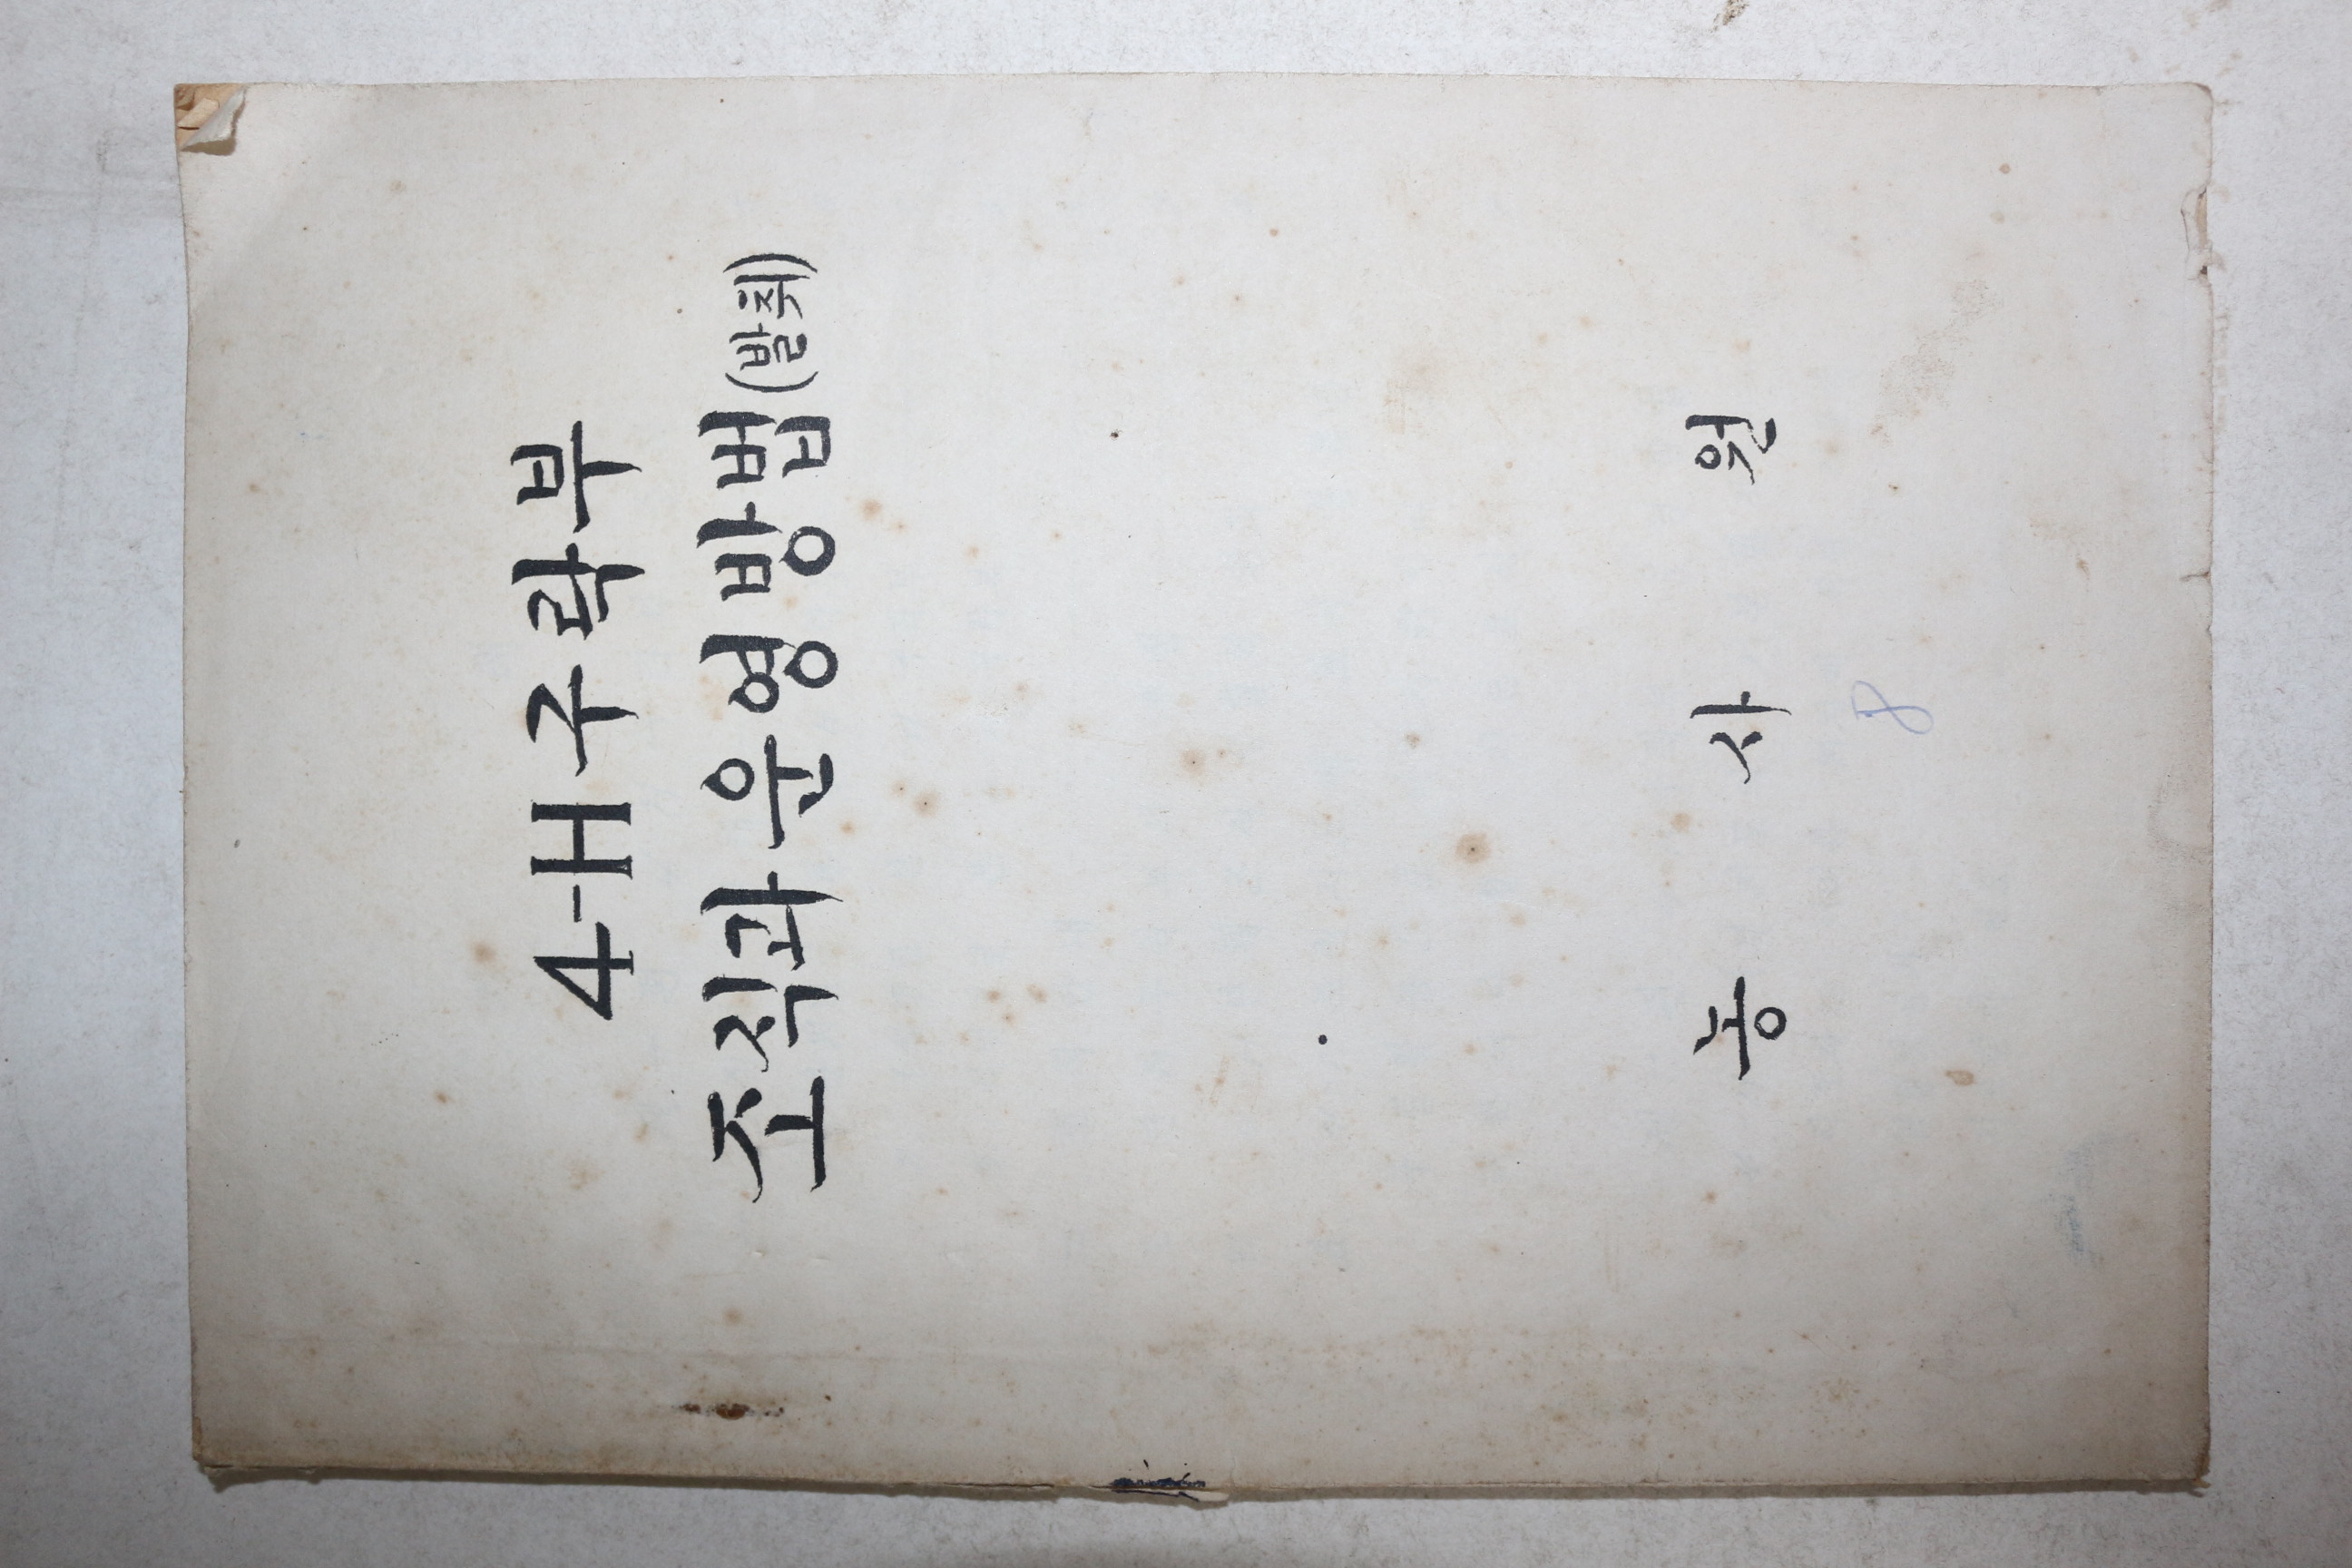 4-H 구락부
조직과 운영 방법 (발취)
농 사 원
8